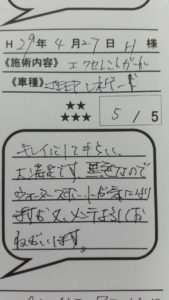 H 29年4月27日 H 様
《施術内容》エクセレントガード
《車種》
★★
★★★
5 / 5
キレイにして頂き
大満足です。黒色なので
ウォータースポットが気になり
ますが又、メンテよろしくお
ねがいします。